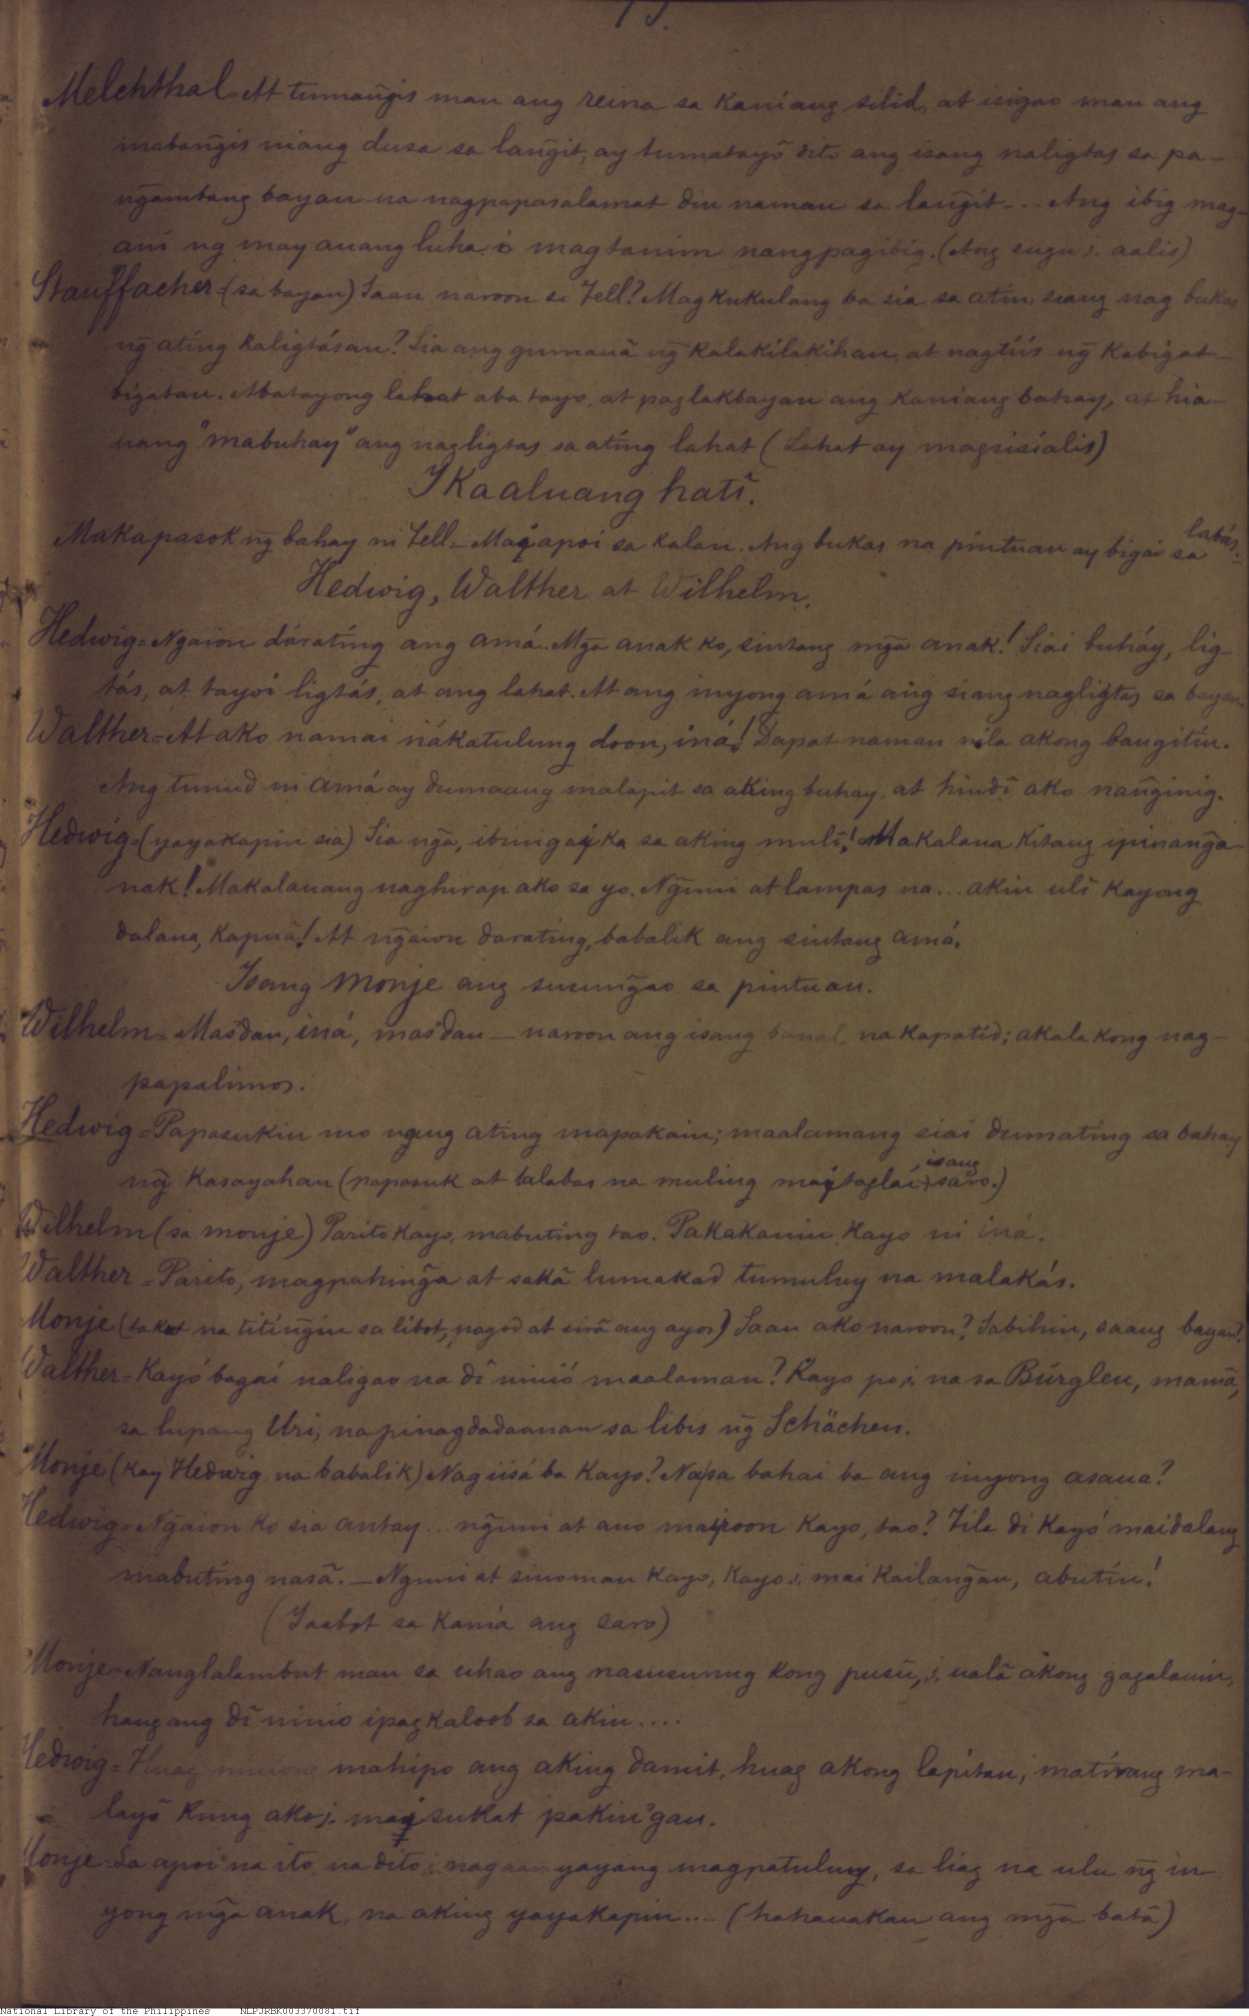 73.
Melchthal = At tumang̃is man ang reina sa kaniang silid, at isigao man ang
mabang̃is niang dusa sa lang̃it, ay tumatayô dito ang isang naligtas sa pa-
ng̃ambang bayan na nagpapasalamat din naman sa lang̃it... Ang ibig mag-
ani ng may auang luha i magtanim nang pagibig. (Ang sugu i. aalis)
Stauffacher = (sa bayan) Saan naroon si Tell? Magkukulang ba sia sa atin, siang nag bukas
ng̃ ating kaligtásan? Sia ang gumauâ ng̃ kalakilakihan, at nagtíis ng̃ kabigat-
bigatan. Abatayong lahat aba tayo, at paglakbayan ang kaniang bahay, at hia-
uang "mabuhay" ang nagligtas sa ating lahat (Lahat ay magsisialis)
I Kaaluang hatî.
Makapasok ng̃ bahay ni Tell - Mai apoi sa kalan. Ang bukas na pintuan ay bigai sa labás.
Hedwig, Walther at Wilhelm.
Hedwig = Ngaion dárating ang amá. Mg̃a anak ko, sintang mg̃a anak! Siai buháy, lig-
tás, at tayoi ligtás, at ang lahat. At ang inyong amá ang siang nagligtas sa bayan.
Walther = At ako namai nákatulung doon, iná! Dapat naman nila akong bangitin.
Ang tunud ni amá ay dumaang malapit sa aking buhay, at hindî ako nang̃inig.
Hedwig = (yayakapin sia) Sia ng̃a, ibinigay ka sa aking mulî! Makalaua kitang ipinang̃a-
nak! Makalauang naghirap ako sa yo. Ng̃uni at lampas na... akin ulî kayong
dalaua, kapuâ! At ng̃aion darating, babalik ang sintang amá.
Isang monje ang sumung̃ao sa pintuan.
Wilhelm = Masdan, iná, masdan — naroon ang isang banal na kapatid; akala kong nag-
papalimos.
Hedwig = Papasukin mo ngung ating mapakain; maalamang siai dumating sa bahay
ng̃ kasayahan (papasuk at lalabas na muling may taglai isang saro.)
Wilhelm (sa monje) Parito kayo, mabuting tao. Pakakanin kayo ni iná.
Walther = Parito, magpahing̃a at sakâ lumakad tumuluy na malakás.
Monje (takot na titing̃in sa libot, pagod at sirâ ang ayos) Saan ako naroon? Sabihin, saang bayan?
Walther = Kayó bagai naligao na dî ninió maalaman? Kayo po i. na sa Bürglen, mamâ,
sa lupang Uri, na pinagdadaanan sa libis ng̃ Schächen.
Monje (kay Hedwig na babalik) Nagiisá ba kayo? Nasa bahai ba ang inyong asaua?
Hedwig = Ng̃aion ko sia antay... ng̃uni at ano mayroon kayo, tao? Tila di kayó maidalang
mabuting nasâ. — Nguni at sinoman kayo, kayo i. mai kailang̃an, abutin!
(Iaabot sa kania ang saro)
Monje = Nanglalambut man sa uhao ang nasusunug kong pusû, i. ualâ akong gagalauin,
hangang dî ninio ipagkaloob sa akin....
Hedwig = Huag niniong mahipo ang aking damit, huag akong lapitan; matirang ma-
layô kung ako i. may sukat pakingan.
Monje = Sa apoi na ito na dito i. nagaanyayang magpatuluy, sa liag na ulu ng̃ in-
yong mg̃a anak, na aking yayakapin.... (hahauakan ang mg̃a batà)
National Library of the Philippines NLPJRBK003370081.tif